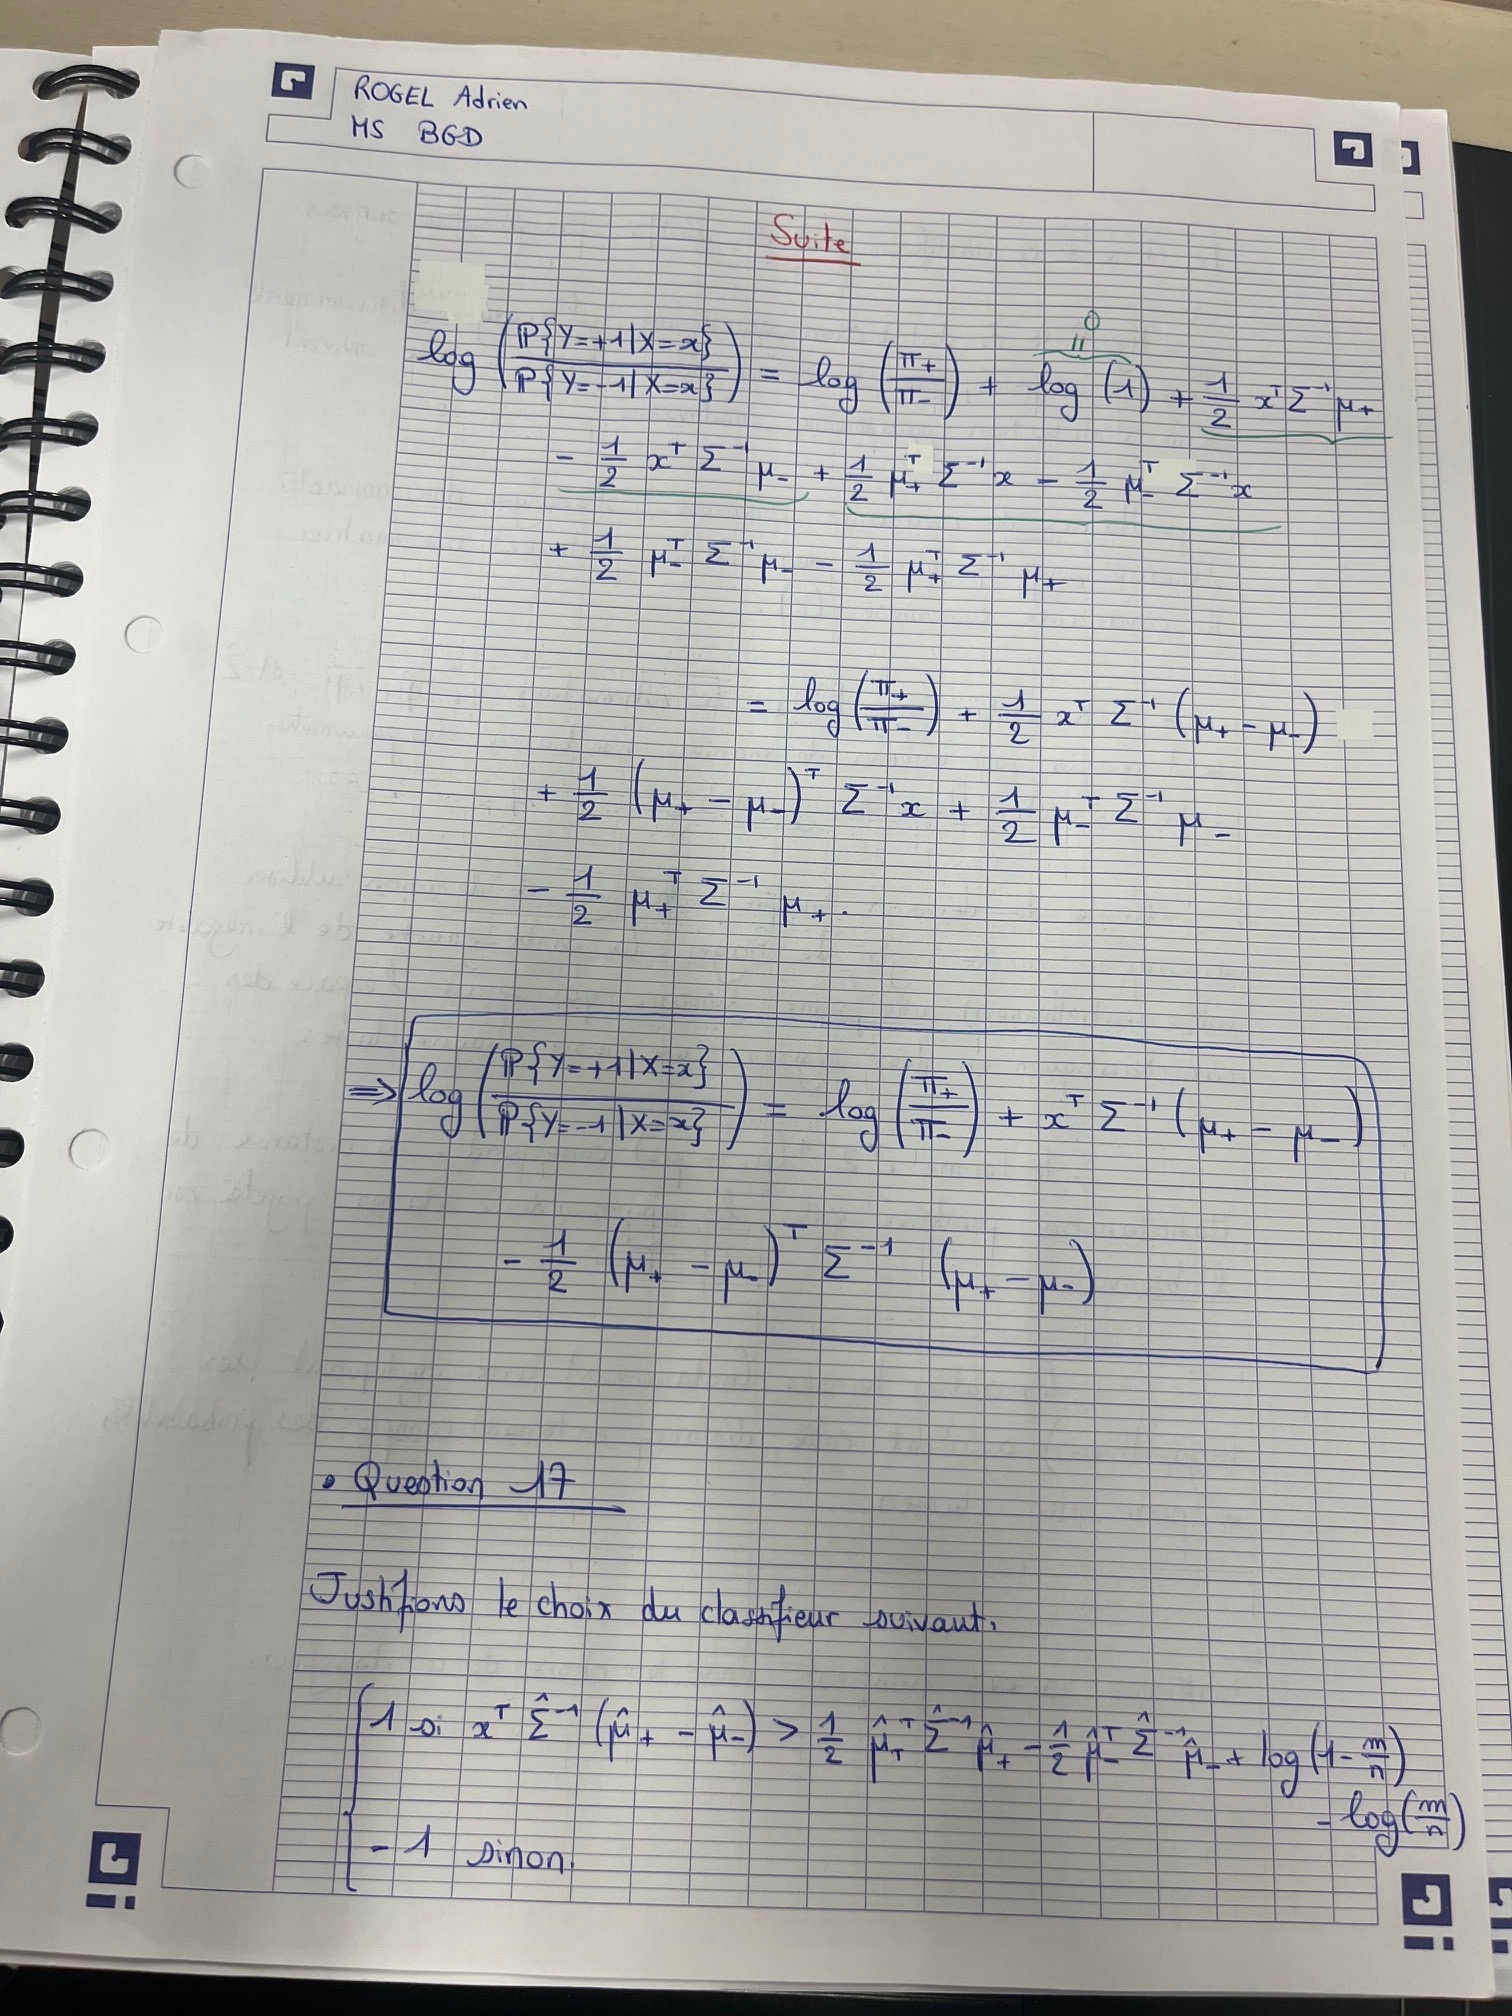 ROGEL Adrien
MS BGD
Suite
0
log (P{Y=+1|X=x} / P{Y=-1|X=x}) = log (π₊/π₋) + log (1) + 1/2 xᵀ Σ⁻¹ μ₊
- 1/2 xᵀ Σ⁻¹ μ₋ + 1/2 μ₊ᵀ Σ⁻¹ x - 1/2 μ₋ᵀ Σ⁻¹ x
+ 1/2 μ₋ᵀ Σ⁻¹ μ₋ - 1/2 μ₊ᵀ Σ⁻¹ μ₊
= log (π₊/π₋) + 1/2 xᵀ Σ⁻¹ (μ₊ - μ₋)
+ 1/2 (μ₊ - μ₋)ᵀ Σ⁻¹ x + 1/2 μ₋ᵀ Σ⁻¹ μ₋
- 1/2 μ₊ᵀ Σ⁻¹ μ₊.
⇒ log (P{Y=+1|X=x} / P{Y=-1|X=x}) = log (π₊/π₋) + xᵀ Σ⁻¹ (μ₊ - μ₋)
- 1/2 (μ₊ - μ₋)ᵀ Σ⁻¹ (μ₊ - μ₋)
• Question 17
Justifions le choix du classifieur suivant.
1 si xᵀ Σ̂⁻¹ (μ̂₊ - μ̂₋) > 1/2 μ̂₊ᵀ Σ̂⁻¹ μ̂₊ - 1/2 μ̂₋ᵀ Σ̂⁻¹ μ̂₋ + log (1 - m/n)
- log (m/n)
- 1 sinon.